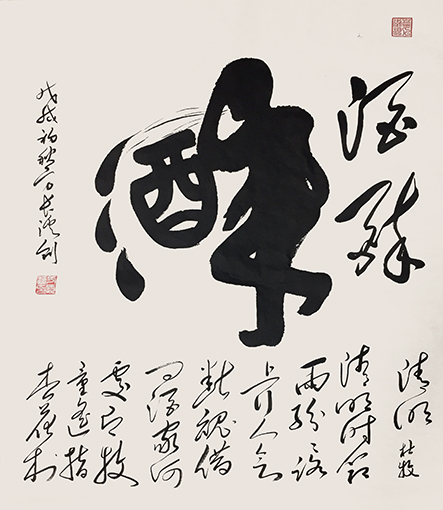 酒
清明
杜牧
清明时节
雨纷纷路
上行人欲
断魂借
问酒家何
处有牧
童遥指
杏花村
戊戌初秋